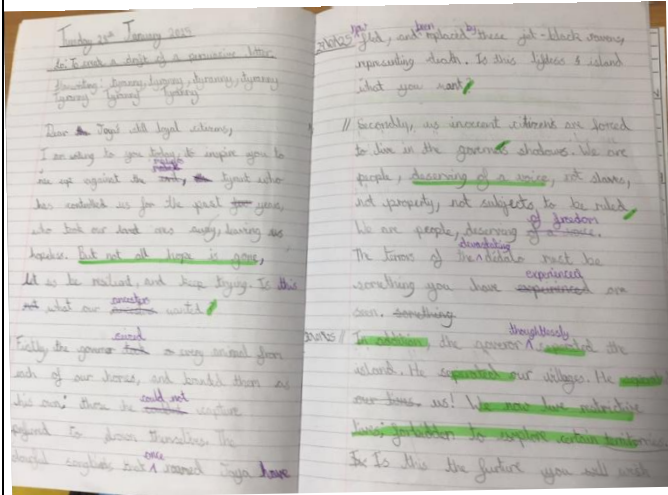 Tuesday 28th January 2025
Lo: To write a draft of a persuasive letter.
Handwriting: tyranny, tyranny, tyranny, tyranny
tyranny tyranny tyranny
Dear Joya's still loyal citizens,
I am writing to you today to inspire you to
rise up against the tyrant who
has controlled us for the past years,
who took our land away, leaving us
hopeless. But not all hope is gone,
let us be resilient, and keep trying. Is this
what our ancestors wanted
Firstly, the governor every animal from
each of our homes, and branded them as
his own: those he could not capture
to drown themselves. The
songbirds that once roamed Joya have
now fled, and been replaced by these jet-black ravens,
representing death. Is this lifeless island
what you want
// Secondly, us innocent citizens are forced
to live in the governor's shadows. We are
people, deserving of a voice, not slaves,
not property, not subjects, to be ruled
We are people, deserving of freedom
The terrors of the devastating must be
something you have experienced or
seen. something
// In addition, the governor thoughtlessly separated the
island. He separated our villages. He separated
our lives. us! We now live restrictive
lives; forbidden to explore certain territories.
Is this the future you will wish